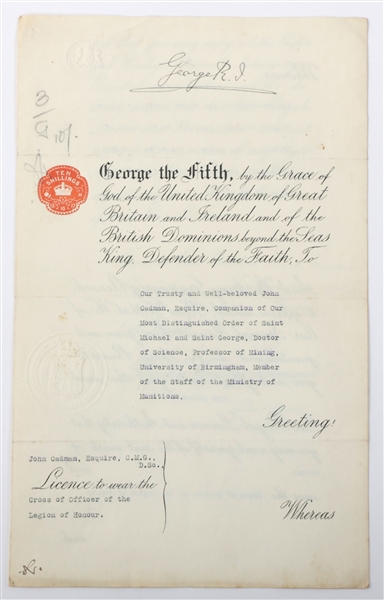 George R.I.
3
10/-
TEN
SHILLINGS
George the Fifth, by the Grace of
God of the United Kingdom of Great
Britain and Ireland and of the
British Dominions beyond the Seas
King, Defender of the Faith, To
Our Trusty and Well-beloved John
Cadman, Esquire, Companion of Our
Most Distinguished Order of Saint
Michael and Saint George, Doctor
of Science, Professor of Mining,
University of Birmingham, Member
of the Staff of the Ministry of
Munitions.
Greeting!
John Cadman, Esquire, C.M.G.,
D.Sc.,
Licence to wear the
Cross of Officer of the
Legion of Honour.
Whereas